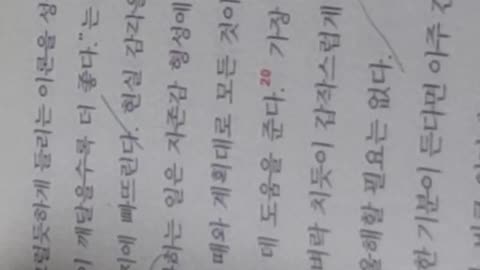 그럴듯하게 들리는 이론을 성
깨달을수록 더 좋다."는
에 빠뜨린다. 현실 감각을
하는 일은 자존감 향성에
때와 계획대로 모든 것이
데 도움을 준다.20 가장
벼락 치듯이 갑작스럽게
필요는 없다.
한 기분이 든다면 아주